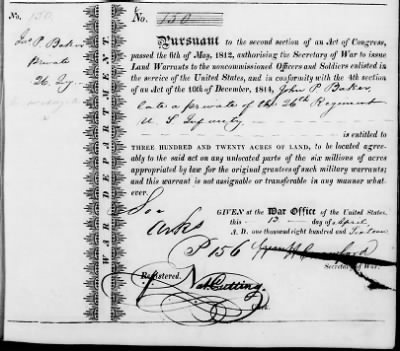 No. 150
Jno P. Baker
Private
26. Iny
WAR DEPARTMENT.
No. 150
Pursuant to the second section of an Act of Congress,
passed the 6th of May, 1812, authorising the Secretary of War to issue
Land Warrants to the noncommissioned Officers and Soldiers enlisted in
the service of the United States, and in conformity with the 4th section
of an Act of the 10th of December, 1814, John P Baker
late a private of the 26th Regiment
U. S Infantry
is entitled to
THREE HUNDRED AND TWENTY ACRES OF LAND, to be located agree-
ably to the said act on any unlocated parts of the six millions of acres
appropriated by law for the original grantees of such military warrants;
and this warrant is not assignable or transferable in any manner what-
ever.
GIVEN at the War Office of the United States,
this 13 day of April
A. D. one thousand eight hundred and Sixteen
Arks
P 156
Wm H Crawford
Secretary of War.
Registered.
Cutting
Clk.